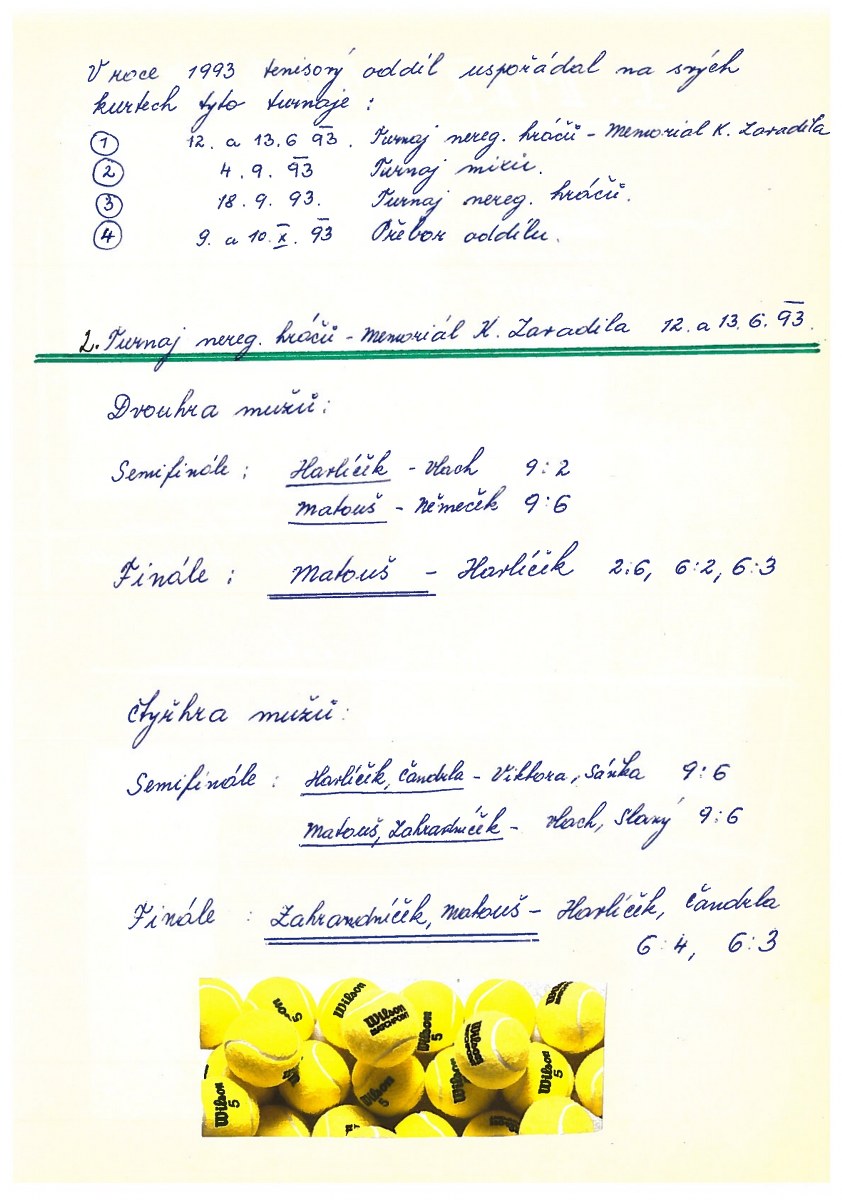 V roce 1993 tenisový oddíl uspořádal na svých
kurtech tyto turnaje :
1 12. a 13.6 93. Turnaj nereg. hráčů - Memorial K. Zavadila
2 4. 9. 93 Turnaj mixů.
3 18. 9. 93. Turnaj nereg. hráčů.
4 9. a 10. X. 93 Přebor oddílu.
2. Turnaj nereg. hráčů - Memoriál K. Zavadila 12. a 13. 6. 93.
Dvouhra mužů:
Semifinále : Havlíček - Vlach 9:2
Matouš - Němeček 9:6
Finále : Matouš - Havlíček 2:6, 6:2, 6:3
Čtyřhra mužů:
Semifinále : Havlíček, Čandrla - Viktora, Sáňka 9:6
Matouš, Zahradníček - Vlach, Slaný 9:6
Finále : Zahrandníček, Matouš - Havlíček, Čandrla
6:4, 6:3
Wilson 5
Wilson
Wilson MATCHPOINT
Wilson 5
Wilson 5
Wilson 5